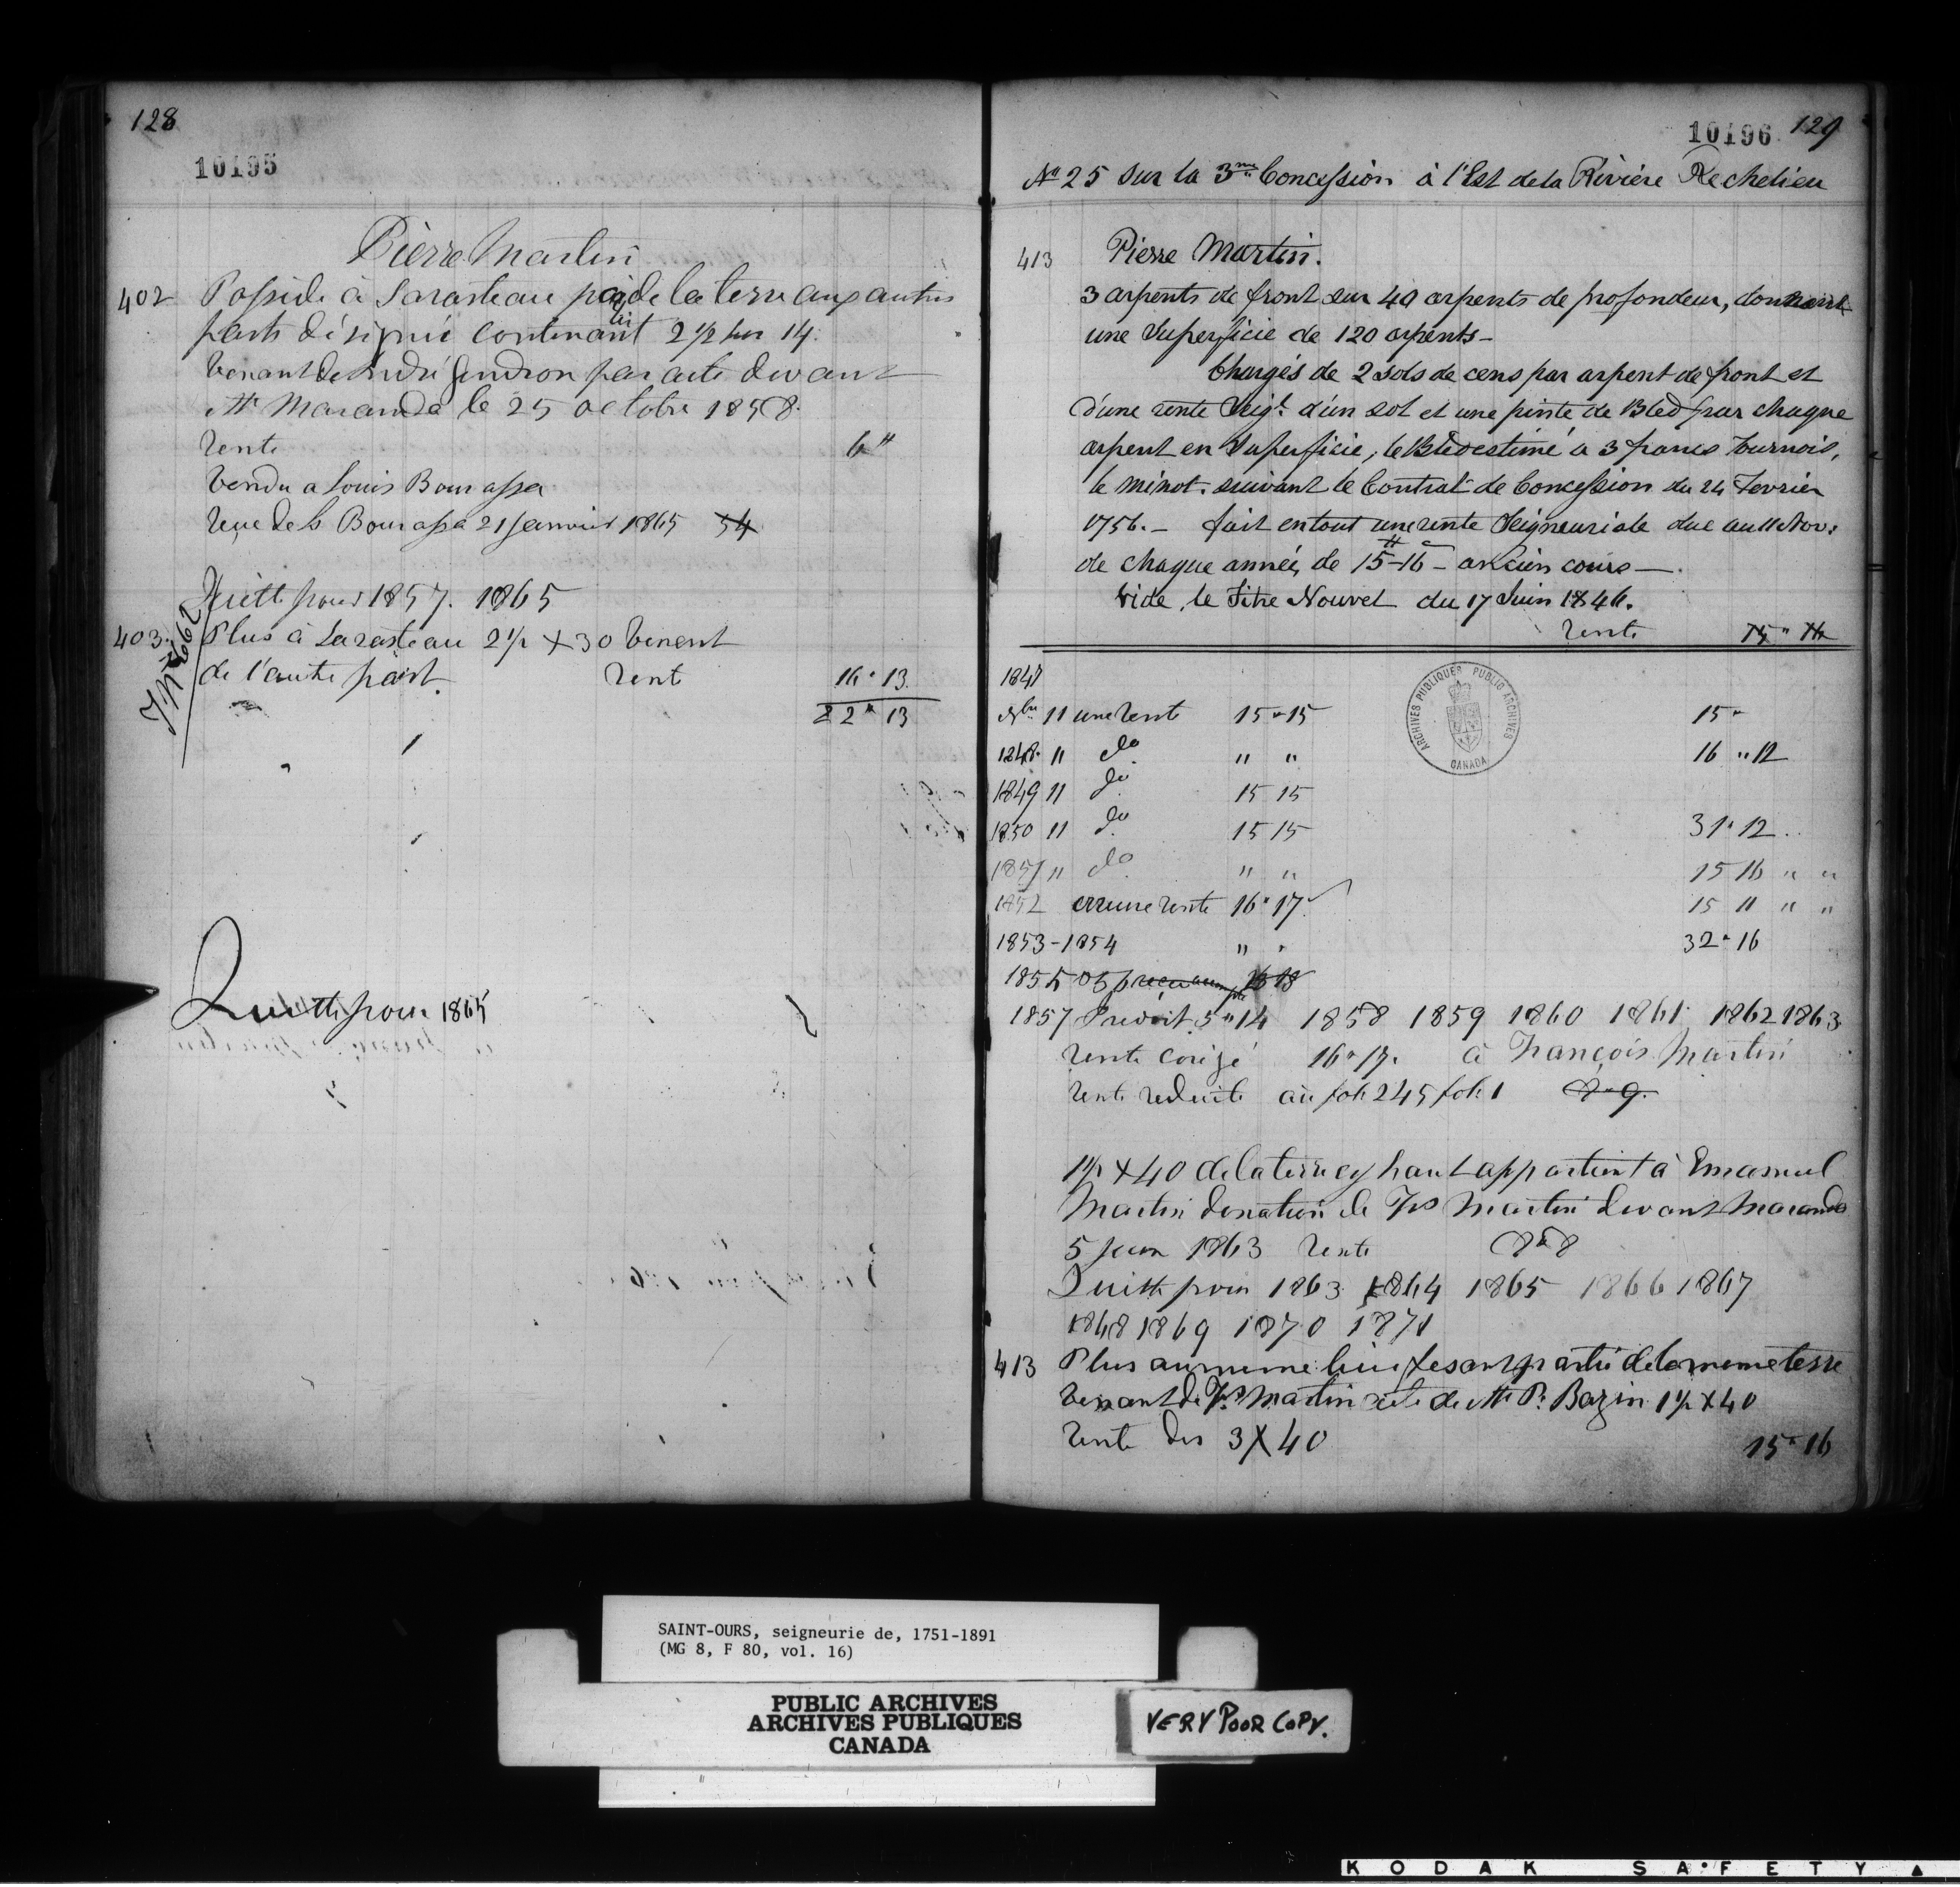 128
10195
Pierre Martin
402 Posside à Sarasteau de la terre aux autres
parts désignée contenant 2 1/2 sur 14.
Venant de André Gendron par acte devant
Mtr Maranda le 25 octobre 1858.
rente 6"
Vendu a Louis Bourassa
Reçue de Ls Bourassa 21 Janvier 1865 54
Quitte pour 1857. 1865
403. Plus à Sarasteau 2 1/2 X 30 Venent
de l'autre part. rent 16 " 13
22 " 13
Quitte pour 1865
10196 129
No 25 sur la 3me Concession à l'Est de la Rivière Rechelieu
413 Pierre Martin.
3 arpents de front sur 40 arpents de profondeur, donnant
une Superficie de 120 arpents -
Chargés de 2 sols de cens par arpent de front et
d'une rente Seigl. d'un sol et une pinte de Bled par chaque
arpent en Superficie, le Bled estimé a 3 francs Tournois,
le minot. suivant le Contrat de Concession du 24 Fevrier
1756. - fait en tout une rente Seigneuriale due au 11 Nov:
de chaque année, de 15-16 - ancien cours -
Vide, le Titre Nouvel du 17 Juin 1846.
rente 15 " 16
1847
Nbre 11 une rente 15 " 15 15 "
1848. 11 do " " 16 " 12
1849 11 do 15 15
1850 11 do 15 15 31 " 12
1851 " do " " 15 16 " "
1852 une rente 16 " 17 15 11 " "
1853-1854 " " 32 " 16
1855
1857 5 " 14 1858 1859 1860 1861 1862 1863
rente corigé 16 " 17. à François Martin
rente reduite au folio 245 folio 1 8 " 9.
1 1/2 X 40 de la terre cy haut appartient à Emanuel
Martin donation de Frs Martin devant Maranda
5 Juin 1863 rente 8 " 8
Quitte pour 1863 1864 1865 1866 1867
1868 1869 1870 1871
413 Plus au meme lieu fesant partie de la meme terre
Venant de Frs Martin acte de Mtr P. Bazin 1 1/2 X 40
rente des 3 X 40 15 " 16
ARCHIVES PUBLIQUES PUBLIC ARCHIVES CANADA
SAINT-OURS, seigneurie de, 1751-1891
(MG 8, F 80, vol. 16)
PUBLIC ARCHIVES
ARCHIVES PUBLIQUES
CANADA
VERY POOR COPY.
KODAK SAFETY